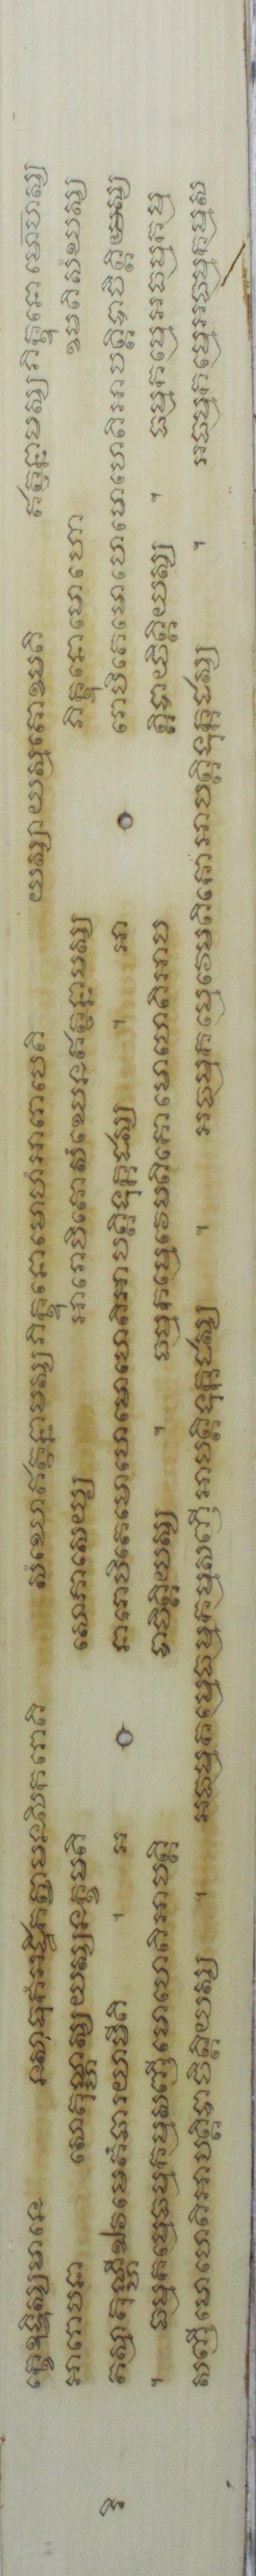 ក្ខេឧទ្ទិស្សមានេ នសាធុកំអដ្ឋិកត្វាមនសិករោតិ សំឃោឥត្ថន្នាមស្សភិក្ខុនោមោហំអារោបេតិ យស្សាយស្មតោខមតិ ឥត្ថន្នាមស្សភិក្ខុនោមោហស្ស
អារោបនា សោតុណ្ហស្សយស្សនក្ខមតិ សោភាសេយ្យ អារោបិតោសំឃេនឥត្ថន្នាមស្ស ភិក្ខុនោមោហោ ខមតិសំឃស្ស
តស្មាតុណ្ហីឯវមេតំធារយាមីតិ ។ អ នារោបិតេមោហេមោហេតិអាបត្តិទុក្កដស្ស ។ អា រោបិតេមោហេមោហេតិអាបត្តិបាចិត្តិយស្ស
។ ធម្មកម្មេធម្មកម្មសញ្ញីមោហេតិអាបត្តិ បាចិត្តិយស្ស ។ ធម្មកម្មេវេមតិកោមោហេតិអាប ត្តិបាចិត្តិយស្ស ។ ធម្មកម្មេអធម្មកម្ម
សញ្ញីមោហេតិអាបត្តិបាចិត្តិយស្ស ។ អធម្មកម្មេធម្មកម្មសញ្ញីអាបត្តិទុក្កដស្ស ។ អធម្មកម្មេវេមតិកោអាបត្តិទុក្កដស្ស ។ អធម្មកម្មេអធម្មកម្មស